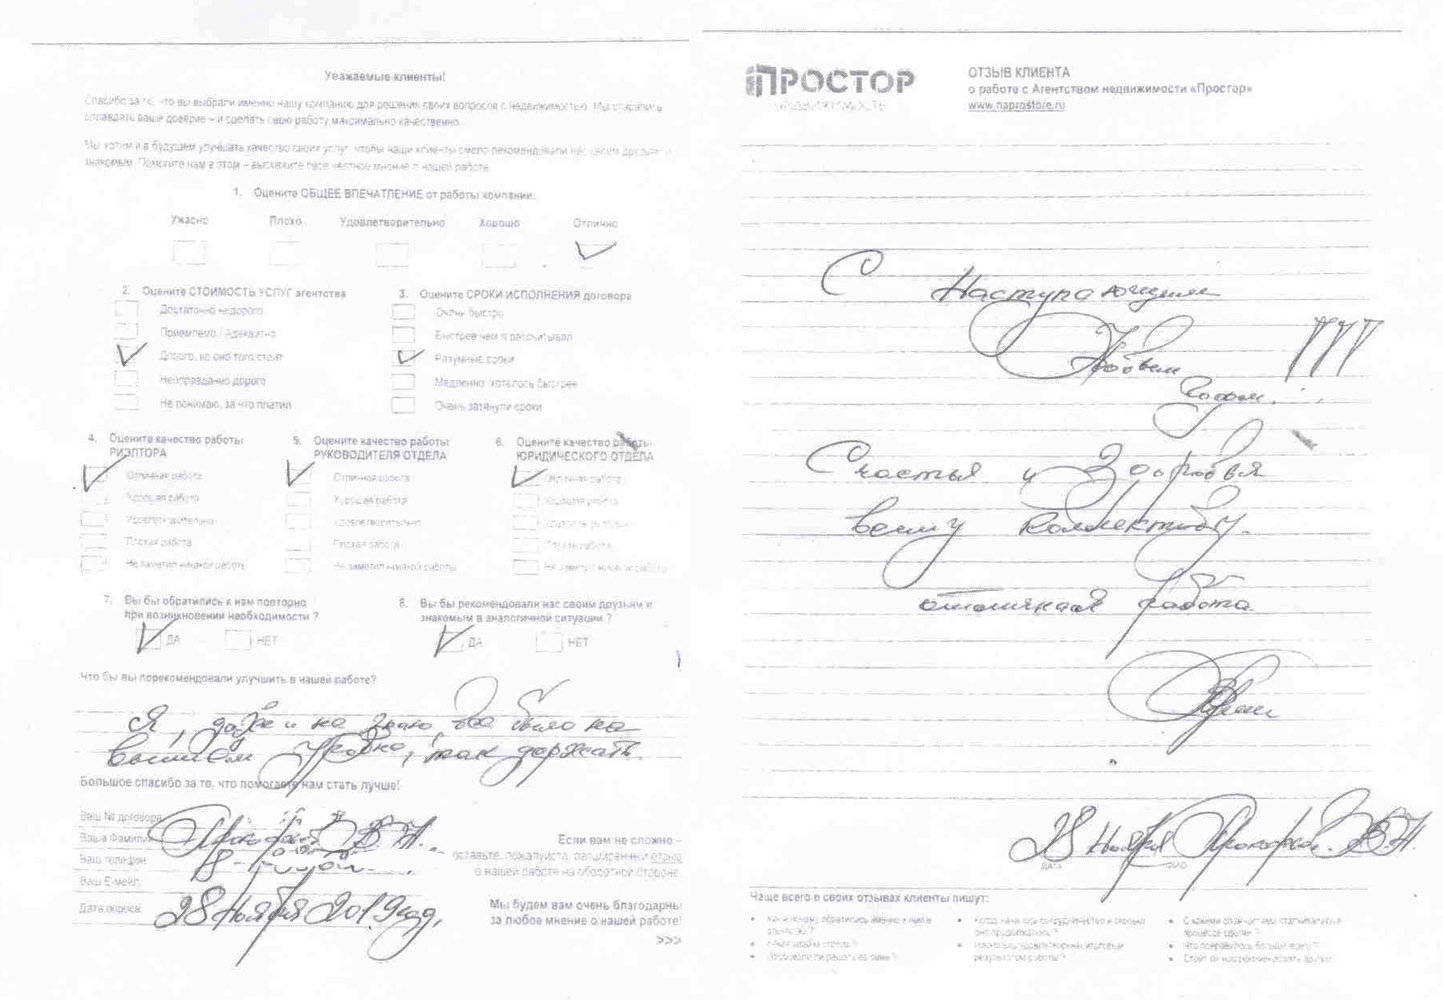 Уважаемые клиенты!
Спасибо за то, что вы выбрали именно нашу компанию для решения своих вопросов с недвижимостью. Мы старались
оправдать ваше доверие – и сделать свою работу максимально качественно.
Мы хотим и в будущем улучшать качество своих услуг, чтобы наши клиенты смело рекомендовали нас своим друзьям и
знакомым. Помогите нам в этом – выскажите свое честное мнение о нашей работе.
1. Оцените ОБЩЕЕ ВПЕЧАТЛЕНИЕ от работы компании:
Ужасно Плохо Удовлетворительно Хорошо Отлично
2. Оцените СТОИМОСТЬ УСЛУГ агентства
Достаточно недорого
Приемлемо / Адекватно
Дорого, но оно того стоит
Неоправданно дорого
Не понимаю, за что платил
3. Оцените СРОКИ ИСПОЛНЕНИЯ договора
Очень быстро
Быстрее чем я рассчитывал
Разумные сроки
Медленно, хотелось быстрее
Очень затянули сроки
4. Оцените качество работы
РИЭЛТОРА
Отличная работа
Хорошая работа
Удовлетворительно
Плохая работа
Не заметил никакой работы
5. Оцените качество работы
РУКОВОДИТЕЛЯ ОТДЕЛА
Отличная работа
Хорошая работа
Удовлетворительно
Плохая работа
Не заметил никакой работы
6. Оцените качество работы
ЮРИДИЧЕСКОГО ОТДЕЛА
Отличная работа
Хорошая работа
Плохая работа
Не заметил никакой работы
7. Вы бы обратились к нам повторно
при возникновении необходимости ?
ДА НЕТ
8. Вы бы рекомендовали нас своим друзьям и
знакомым в аналогичной ситуации ?
ДА НЕТ
Что бы вы порекомендовали улучшить в нашей работе?
Я, даже и не знаю все было на
высшем уровне, так держать.
Большое спасибо за то, что помогаете нам стать лучше!
Ваш № договора
Ваша Фамилия
Ваш телефон
Ваш E-мейл
Дата опроса: 28 Ноября 2019 год,
Если вам не сложно –
оставьте, пожалуйста, расширенный отзыв
о нашей работе на оборотной стороне.
Мы будем вам очень благодарны
за любое мнение о нашей работе!
>>>
ПРОСТОР
НЕДВИЖИМОСТЬ
ОТЗЫВ КЛИЕНТА
о работе с Агентством недвижимости «Простор»
www.naprostore.ru
С Наступающим
Новым !!!
Годом.
Счастья и Здоровья
всему коллективу.
отличная работа
28 Ноября
ДАТА ФИО
Чаще всего в своих отзывах клиенты пишут: